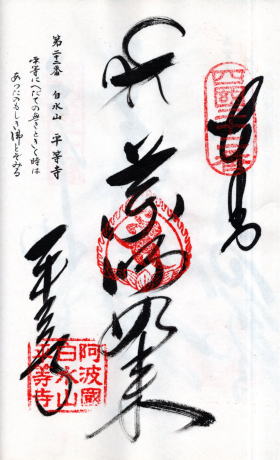 四國第廿二番
奉納
薬師如来
平等寺
阿波國
白水山
平等寺
第二十二番 白水山 平等寺
平等にへだてのなきときく時は
あらたのもしき佛とぞみる